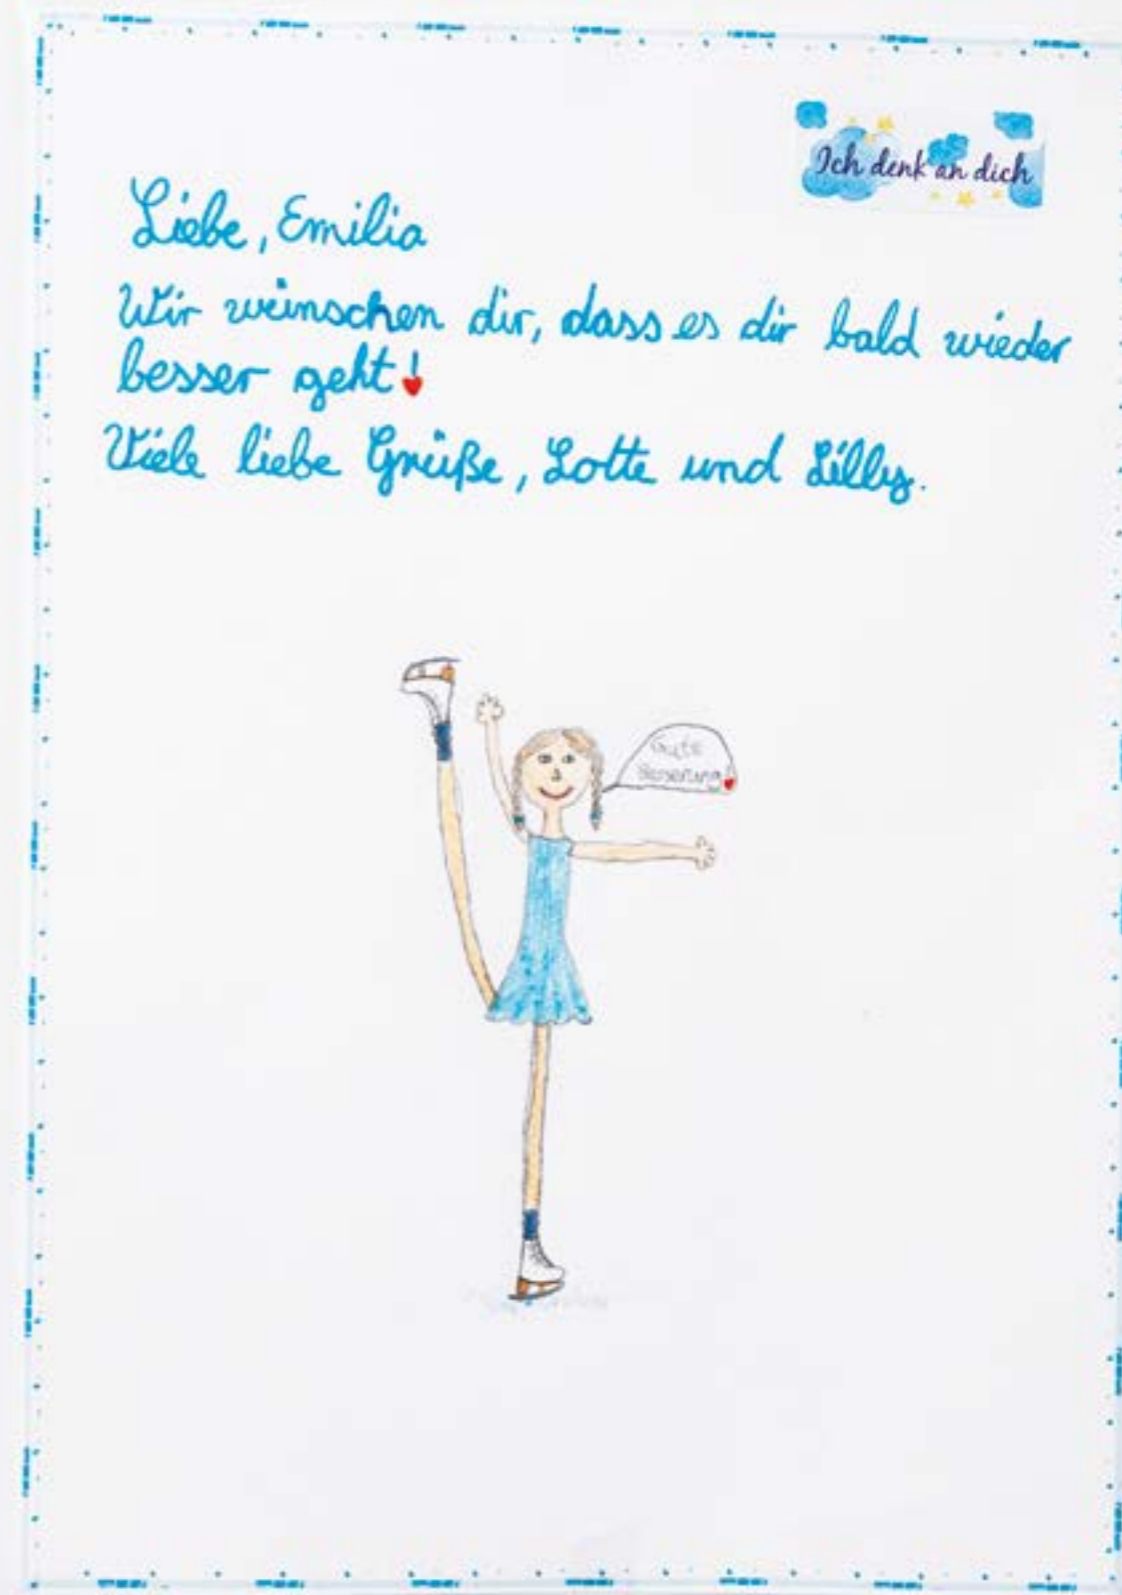 Ich denk an dich
Liebe, Emilia
Wir wünschen dir, dass es dir bald wieder
besser geht!
Viele liebe Grüße, Lotte und Lilly.
Gute
Besserung!